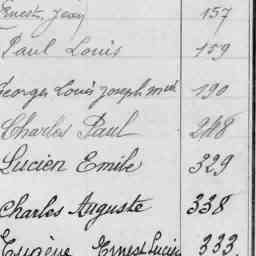 Ernest, Jean 157
Paul Louis 159
Georges Louis Joseph 190
Charles Paul 248
Lucien Emile 329
Charles Auguste 338
Eugène Ernest Lucien 333